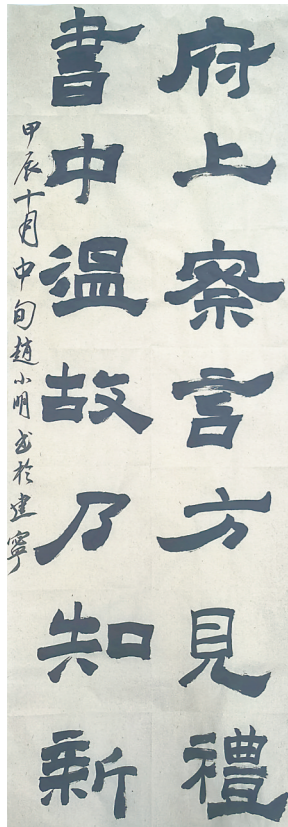 府上察言方見禮
書中溫故乃知新
甲辰十月中旬趙小明書於建寧